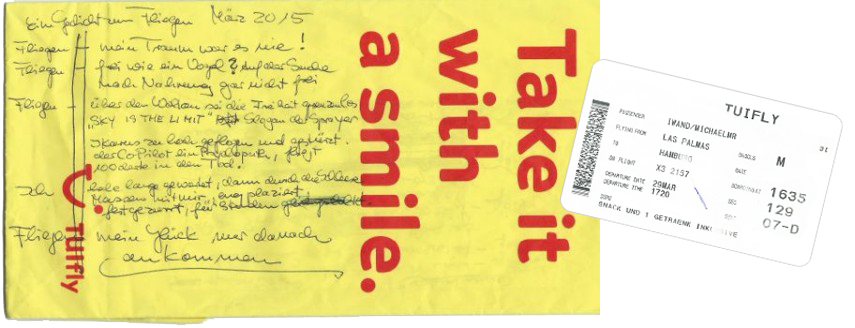 Ein Gedicht zum Fliegen März 2015
Fliegen – mein Traum war es nie!
Fliegen – frei wie ein Vogel? Auf der Suche
nach Nahrung gar nicht frei
Fliegen – über den Wolken sei die Freiheit grenzenlos
"SKY IS THE LIMIT" Slogan der Sprayer
Ikarus zu hoch geflogen und gestürzt.
der CoPilot ein Psychopath, fliegt
100derte in den Tod!
Ich habe lange gewartet, dann durch die
Massen mit mir, eng plaziert
festgezurrt, für Stunden
Fliegen mein Glück nur danach
ankommen
Tuifly
Take it
with
a smile.
TUIFLY
PASSENGER IWAND/MICHAELMR
FLYING FROM LAS PALMAS
TO HAMBURG
ON FLIGHT X3 2157
DEPARTURE DATE 29MAR
DEPARTURE TIME 1720
SNACK UND 1 GETRAENK INKLUSIVE
31
M
GATE
1635
SEQ 129
07-D